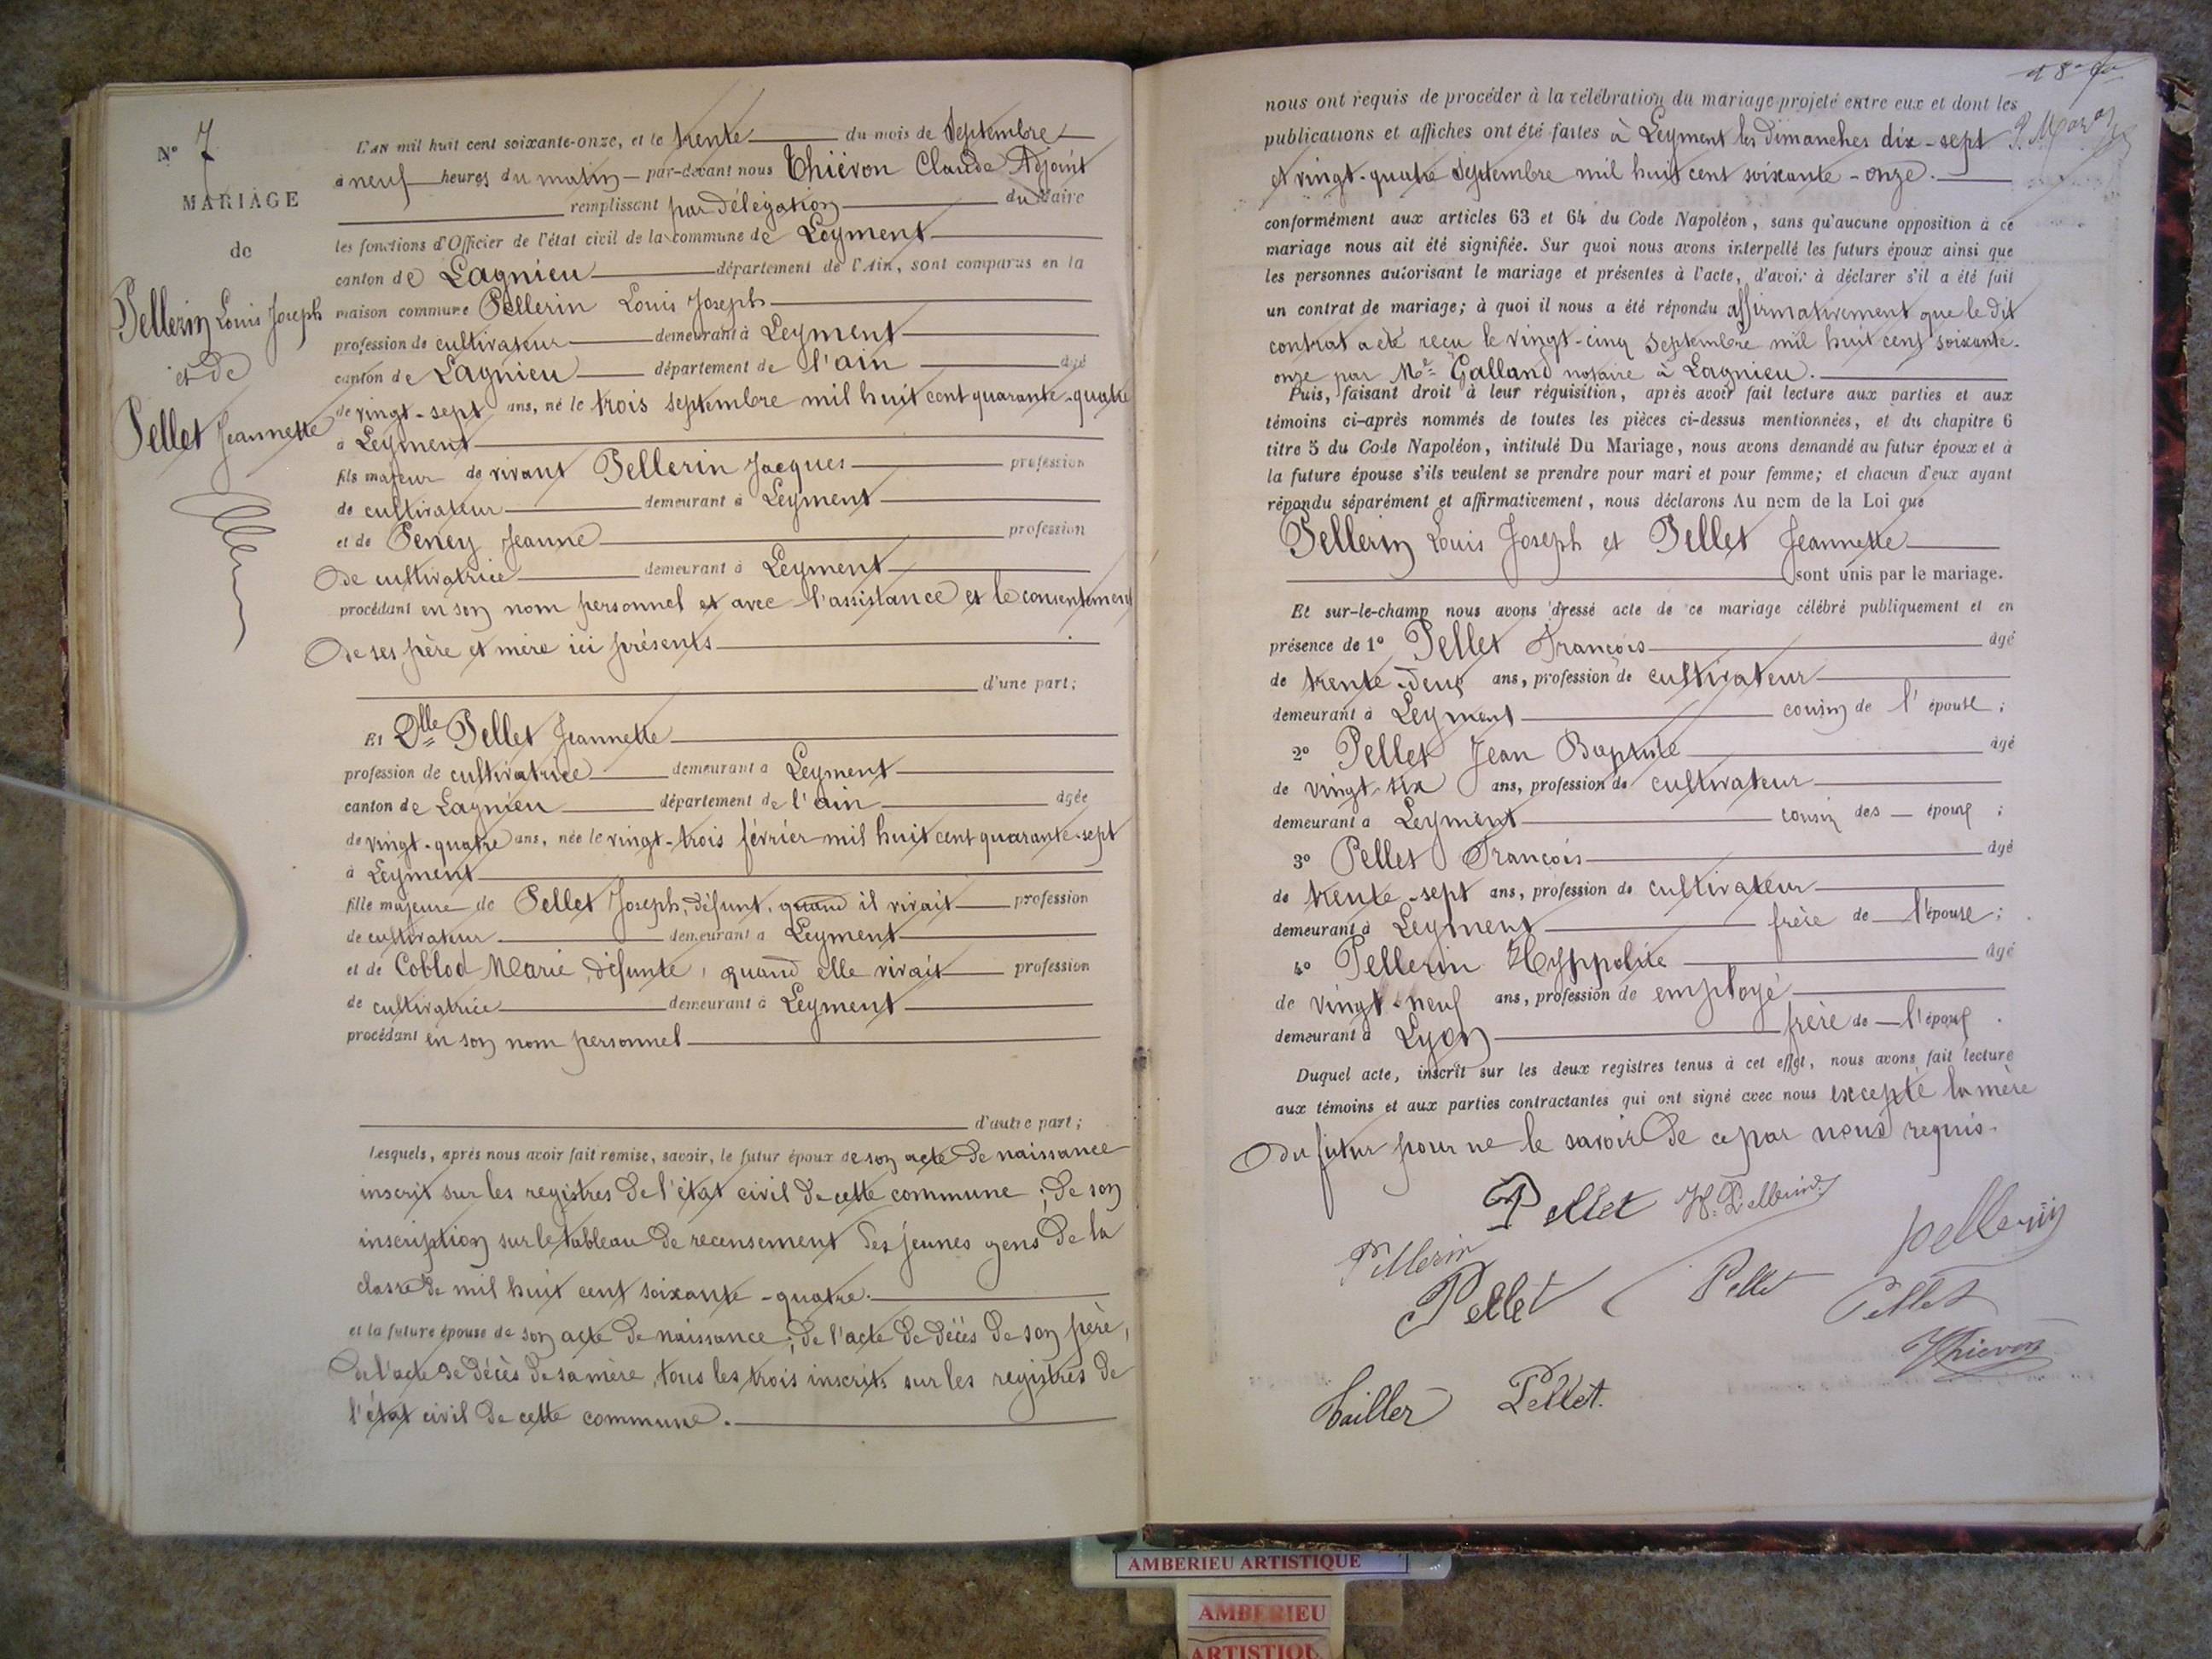 N° 7
MARIAGE
de
Pellerin Louis Joseph
et de
Pellet Jeannette
L'AN mil huit cent soixante-onze, et le trente du mois de Septembre
à neuf heures du matin par-devant nous Thiévon Claude Adjoint
remplissant par délégation du Maire
les fonctions d'Officier de l'état civil de la commune de Leyment
canton de Lagnieu département de l'Ain, sont comparus en la
maison commune Pellerin Louis Joseph
profession de cultivateur demeurant à Leyment
canton de Lagnieu département de l'ain âgé
de vingt-sept ans, né le trois septembre mil huit cent quarante-quatre
à Leyment
fils majeur de vivant Pellerin Jacques profession
de cultivateur demeurant à Leyment
et de Peney Jeanne profession
de cultivatrice demeurant à Leyment
procédant en son nom personnel et avec l'assistance et le consentement
de ses père et mère ici présents
d'une part;
Et Dlle Pellet Jeannette
profession de cultivatrice demeurant à Leyment
canton de Lagnieu département de l'ain âgée
de vingt-quatre ans, née le vingt-trois février mil huit cent quarante-sept
à Leyment
fille majeure de Pellet Joseph, défunt, quand il vivait profession
de cultivateur demeurant à Leyment
et de Coblod Marie, défunte, quand elle vivait profession
de cultivatrice demeurant à Leyment
procédant en son nom personnel
d'autre part;
Lesquels, après nous avoir fait remise, savoir, le futur époux de son acte de naissance
inscrit sur les registres de l'état civil de cette commune; de son
inscription sur le tableau de recensement des jeunes gens de la
classe de mil huit cent soixante-quatre.
et la future épouse de son acte de naissance; de l'acte de décès de son père,
de l'acte de décès de sa mère, tous les trois inscrits sur les registres de
l'état civil de cette commune.
nous ont requis de procéder à la célébration du mariage projeté entre eux et dont les
publications et affiches ont été faites à Leyment les dimanches dix-sept
et vingt-quatre Septembre mil huit cent soixante-onze.
conformément aux articles 63 et 64 du Code Napoléon, sans qu'aucune opposition à ce
mariage nous ait été signifiée. Sur quoi nous avons interpellé les futurs époux ainsi que
les personnes autorisant le mariage et présentes à l'acte, d'avoir à déclarer s'il a été fait
un contrat de mariage; à quoi il nous a été répondu affirmativement que le dit
contrat a été reçu le vingt-cinq septembre mil huit cent soixante-
onze par Me Galland notaire à Lagnieu.
Puis, faisant droit à leur réquisition, après avoir fait lecture aux parties et aux
témoins ci-après nommés de toutes les pièces ci-dessus mentionnées, et du chapitre 6
titre 5 du Code Napoléon, intitulé Du Mariage, nous avons demandé au futur époux et à
la future épouse s'ils veulent se prendre pour mari et pour femme; et chacun d'eux ayant
répondu séparément et affirmativement, nous déclarons Au nom de la Loi que
Pellerin Louis Joseph et Pellet Jeannette
sont unis par le mariage.
Et sur-le-champ nous avons dressé acte de ce mariage célébré publiquement et en
présence de 1° Pellet François âgé
de trente-deux ans, profession de cultivateur
demeurant à Leyment cousin de l'épouse;
2° Pellet Jean Baptiste âgé
de vingt-six ans, profession de cultivateur
demeurant à Leyment cousin des époux;
3° Pellet François âgé
de trente-sept ans, profession de cultivateur
demeurant à Leyment frère de l'épouse;
4° Pellerin Hyppolite âgé
de vingt-neuf ans, profession de employé
demeurant à Lyon frère de l'époux.
Duquel acte, inscrit sur les deux registres tenus à cet effet, nous avons fait lecture
aux témoins et aux parties contractantes qui ont signé avec nous excepté la mère
du futur pour ne le savoir de ce par nous requis.
Pellet H. Pellerin
Pellerin pellerin
Pellet Pellet Pellet
Thievon
Pellet.
AMBERIEU ARTISTIQUE
AMBERIEU
ARTISTIQU